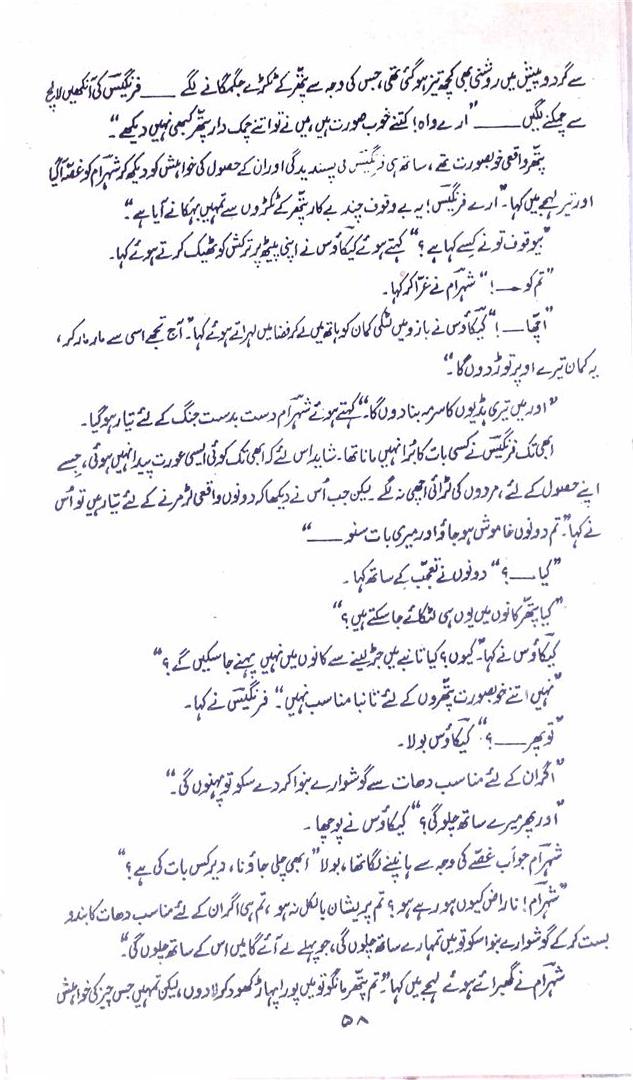 سے گرد و پیش میں روشنی بھی کچھ تیز ہو گئی تھی، جس کی وجہ سے پتھر کے ٹکڑے جگمگانے لگے ــــ فرنگیس کی آنکھیں لالچ
سے چمکنے لگیں ــــ "ارے واہ! کتنے خوب صورت ہیں، میں نے تو اتنے چمک دار پتھر کبھی نہیں دیکھے۔"
پتھر واقعی خوبصورت تھے، ساتھ ہی فرنگیس کی پسندیدگی اور ان کے حصول کی خواہش کو دیکھ کر شہرام کو غصہ آ گیا
اور تیز لہجے میں کہا۔ "ارے فرنگیس! یہ بے وقوف چند بے کار پتھر کے ٹکڑوں سے تمہیں بہکانے آیا ہے۔"
"بیوقوف تو نے کسے کہا ہے؟" کہتے ہوئے کیکاؤس نے اپنی پیٹھ پر ترکش کو ٹھیک کرتے ہوئے کہا۔
"تم کو ــــ!" شہرام نے غرّا کر کہا۔
"اچھا ــــ!" کیکاؤس نے بازو میں لٹکی کمان کو ہاتھ میں لے کر فضا میں لہراتے ہوئے کہا۔ "آج تجھے اسی سے مار مار کر،
یہ کمان تیرے اوپر توڑ دوں گا۔"
"اور میں تیری ہڈیوں کا سرمہ بنا دوں گا۔" کہتے ہوئے شہرام دست بدست جنگ کے لئے تیار ہو گیا۔
ابھی تک فرنگیس نے کسی بات کا بُرا نہیں مانا تھا۔ شاید اس لئے کہ ابھی تک کوئی ایسی عورت پیدا نہیں ہوئی، جسے
اپنے حصول کے لئے، مردوں کی لڑائی اچھی نہ لگے لیکن جب اُس نے دیکھا کہ دونوں واقعی لڑ مرنے کے لئے تیار ہیں تو اُس
نے کہا۔ "تم دونوں خاموش ہو جاؤ اور میری بات سنو ــــ"
"کیا ــــ؟" دونوں نے تعجب کے ساتھ کہا۔
"کیا پتھر کانوں میں یوں ہی لٹکائے جا سکتے ہیں؟"
کیکاؤس نے کہا۔ "کیوں؟ کیا تانبے میں جڑ لینے سے کانوں میں نہیں پہنے جا سکیں گے؟"
"نہیں اتنے خوبصورت پتھروں کے لئے تانبا مناسب نہیں۔" فرنگیس نے کہا۔
"تو پھر ــــ؟" کیکاؤس بولا۔
"اگر ان کے لئے مناسب دھات سے گوشوارے بنوا کر دے سکو تو پہنوں گی۔"
"اور پھر میرے ساتھ چلو گی؟" کیکاؤس نے پوچھا۔
شہرام جو اب غصّے کی وجہ سے ہانپنے لگا تھا، بولا "ابھی چلی جاؤ نا، دیر کس بات کی ہے؟"
"شہرام! ناراض کیوں ہو رہے ہو؟ تم پریشان بالکل نہ ہو، تم ہی اگر ان کے لئے مناسب دھات کا بندو
بست کر کے گوشوارے بنوا سکو تو میں تمہارے ساتھ چلوں گی، جو پہلے لے آئے گا میں اس کے ساتھ چلوں گی۔"
شہرام نے گھبرائے ہوئے لہجے میں کہا۔ "تم پتھر مانگو تو میں پورا پہاڑ کھود کر لا دوں، لیکن تمہیں جس چیز کی خواہش
۵۸